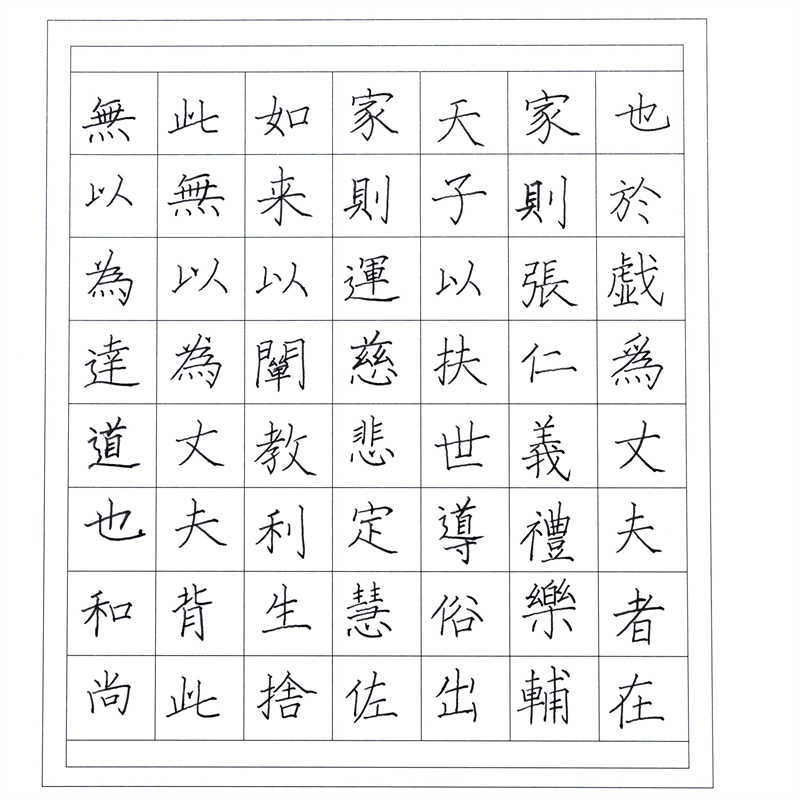 也於戯爲丈夫者在
家則張仁義禮樂輔
天子以扶世導俗出
家則運慈悲定慧佐
如来以闡教利生捨
此無以為丈夫背此
無以為達道也和尚